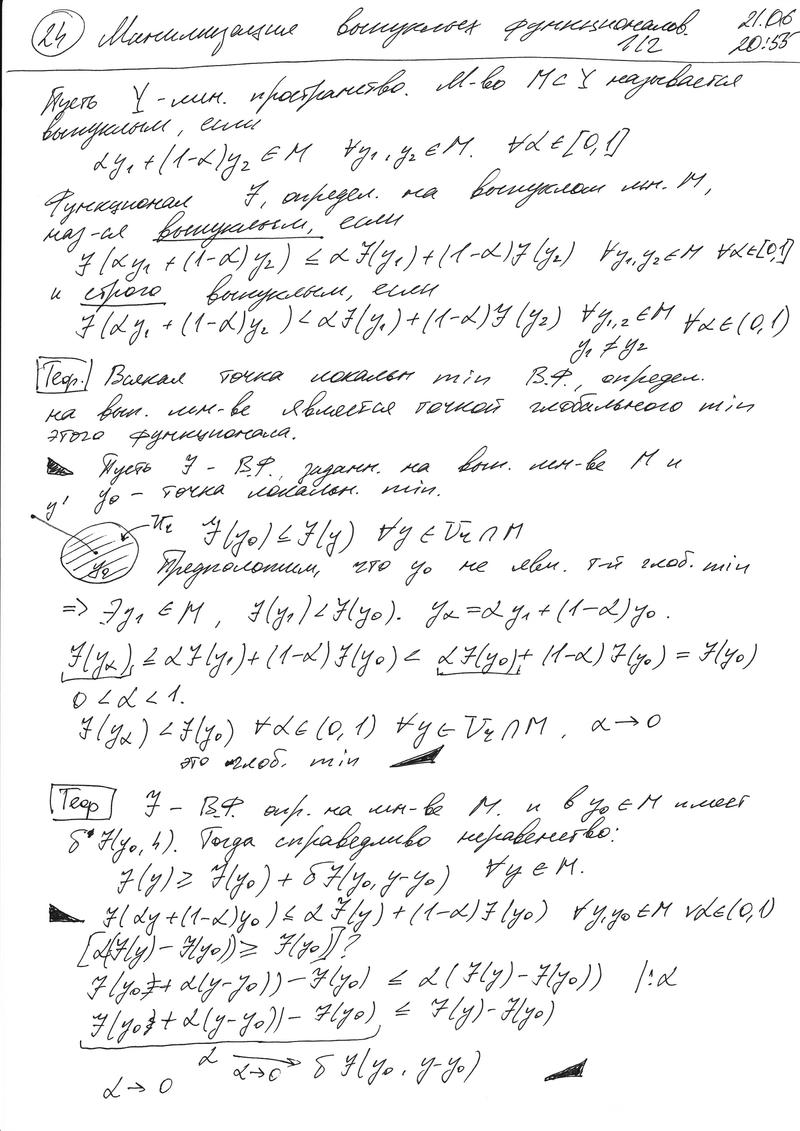 24 Минимизация выпуклых функционалов. 21.06
1/2 20:55
Пусть Y - лин. пространство. М-во M⊂Y называется
выпуклым, если
αy₁+(1-α)y₂ ∈ M ∀y₁,y₂∈M. ∀α∈[0,1]
Функционал J, определ. на выпуклом мн. M,
наз-ся выпуклым, если
J(αy₁+(1-α)y₂) ≤ αJ(y₁)+(1-α)J(y₂) ∀y₁,y₂∈M ∀α∈[0,1]
и строго выпуклым, если
J(αy₁+(1-α)y₂) < αJ(y₁)+(1-α)J(y₂) ∀y₁,₂∈M ∀α∈(0,1)
y₁≠y₂
Теор. Всякая точка локальн min В.Ф., определ.
на вып. мн-ве является точкой глобального min
этого функционала.
Пусть J - В.Ф., заданн. на вып. мн-ве M и
y₀ - точка локальн. min.
y'
y₀
Uτ
J(y₀) ≤ J(y) ∀y∈Uτ∩M
Предположим, что y₀ не явл. т-й глоб. min
=> ∃y₁∈M, J(y₁)<J(y₀). yα=αy₁+(1-α)y₀.
J(yα) ≤ αJ(y₁)+(1-α)J(y₀) < αJ(y₀)+(1-α)J(y₀) = J(y₀)
0<α<1.
J(yα)<J(y₀) ∀α∈(0,1) ∀y∈Uτ∩M, α→0
это глоб. min
Теор J - В.Ф. опр. на мн-ве M. и в y₀∈M имеет
δJ(y₀,h). Тогда справедливо неравенство:
J(y) ≥ J(y₀)+δJ(y₀,y-y₀) ∀y∈M.
J(αy+(1-α)y₀) ≤ αJ(y)+(1-α)J(y₀) ∀y,y₀∈M ∀α∈(0,1)
[α(J(y)-J(y₀)) ≥ J(y₀)]?
J(y₀+α(y-y₀))-J(y₀) ≤ α(J(y)-J(y₀)) |:α
J(y₀+α(y-y₀))-J(y₀) ≤ J(y)-J(y₀)
α
α→0 δJ(y₀,y-y₀)
α→0